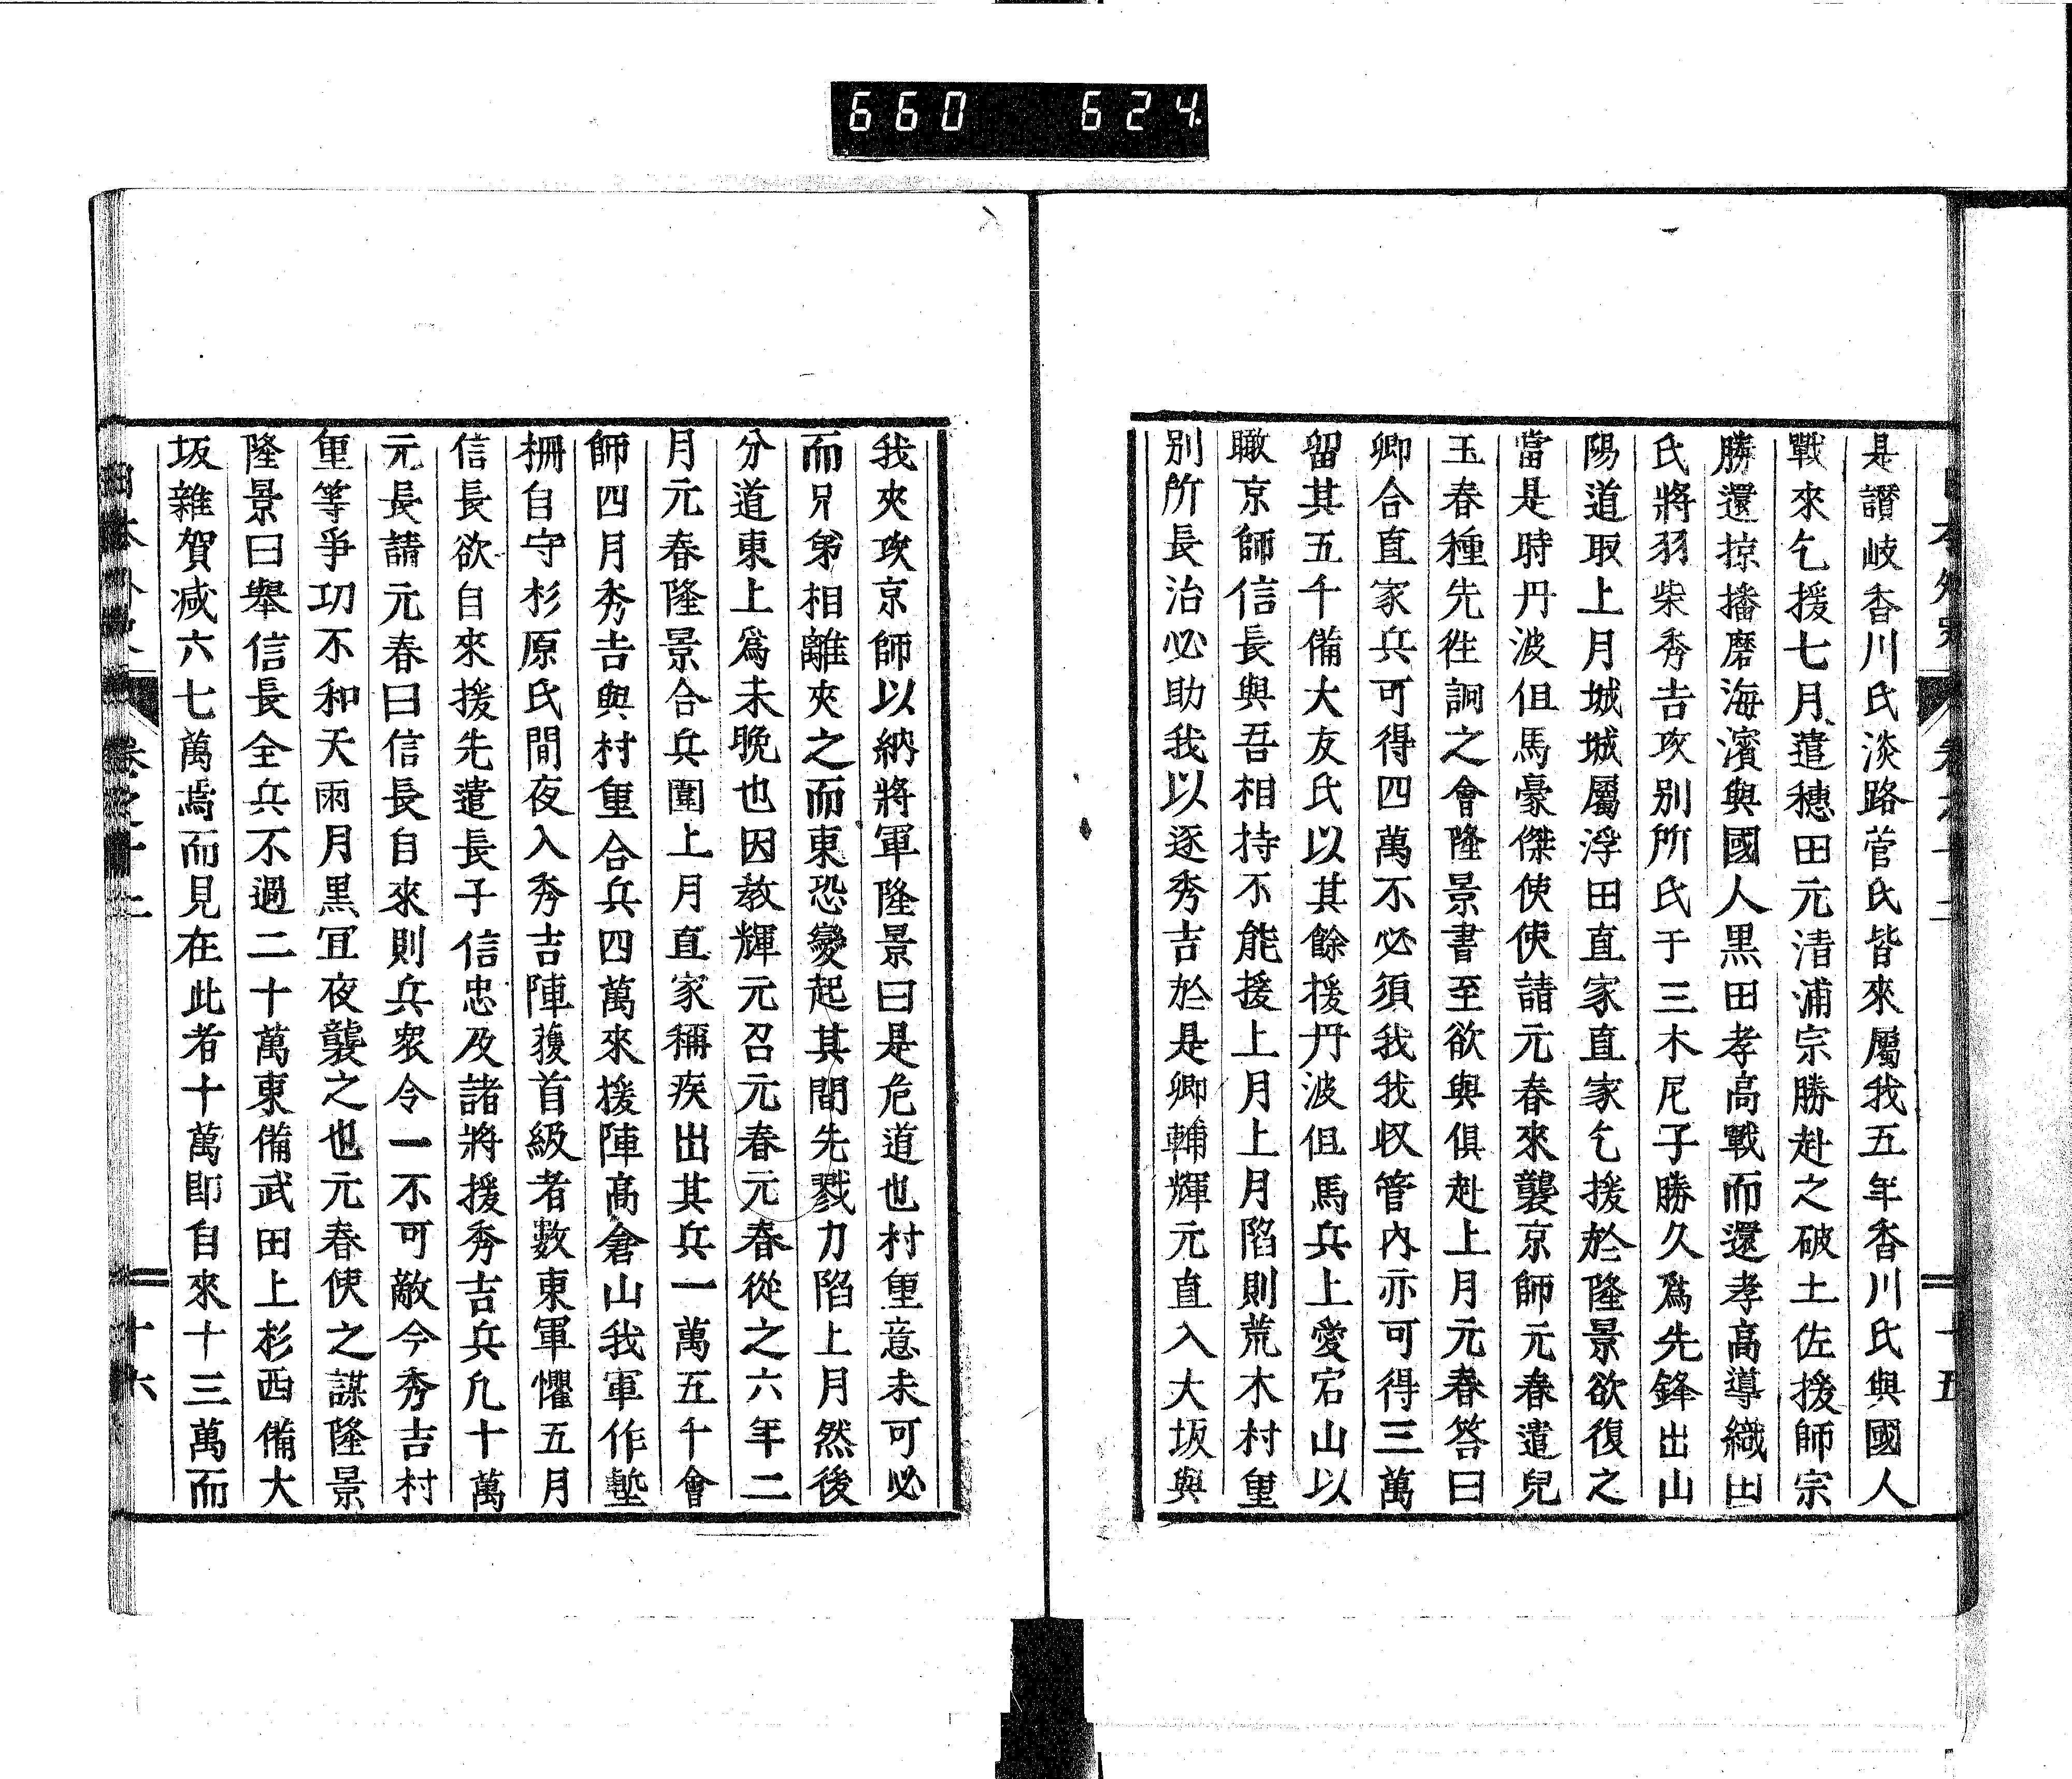 660 624
是讚岐香川氏淡路菅氏皆來屬我五年香川氏與國人
戰來乞援七月遣穗田元清浦宗勝赴之破土佐援師宗
勝還掠播磨海濱與國人黒田孝高戰而還孝高導織田
氏將羽柴秀吉攻別所氏于三木尼子勝久爲先鋒出山
陽道取上月城城屬浮田直家直家乞援於隆景欲復之
當是時丹波但馬豪傑使使請元春來襲京師元春遣兒
玉春種先徃詗之會隆景書至欲與俱赴上月元春答曰
卿合直家兵可得四萬不必須我我収管內亦可得三萬
留其五千備大友氏以其餘援丹波但馬兵上愛宕山以
瞰京師信長與吾相持不能援上月上月陷則荒木村重
別所長治必助我以逐秀吉於是卿輔輝元直入大坂與
十五
我夾攻京師以納將軍隆景曰是危道也村重意未可必
而兄弟相離夾之而東恐變起其間先戮力陷上月然後
分道東上爲未晩也因敎輝元召元春元春從之六年二
月元春隆景合兵圍上月直家稱疾出其兵一萬五千會
師四月秀吉與村重合兵四萬來援陣高倉山我軍作塹
柵自守杉原氏間夜入秀吉陣獲首級者數東軍懼五月
信長欲自來援先遣長子信忠及諸將援秀吉兵凡十萬
元長請元春曰信長自來則兵衆令一不可敵今秀吉村
重等爭功不和天雨月黒冝夜襲之也元春使之謀隆景
隆景曰舉信長全兵不過二十萬東備武田上杉西備大
坂雜賀减六七萬焉而見在此者十萬即自來十三萬而
卷之十二
十六